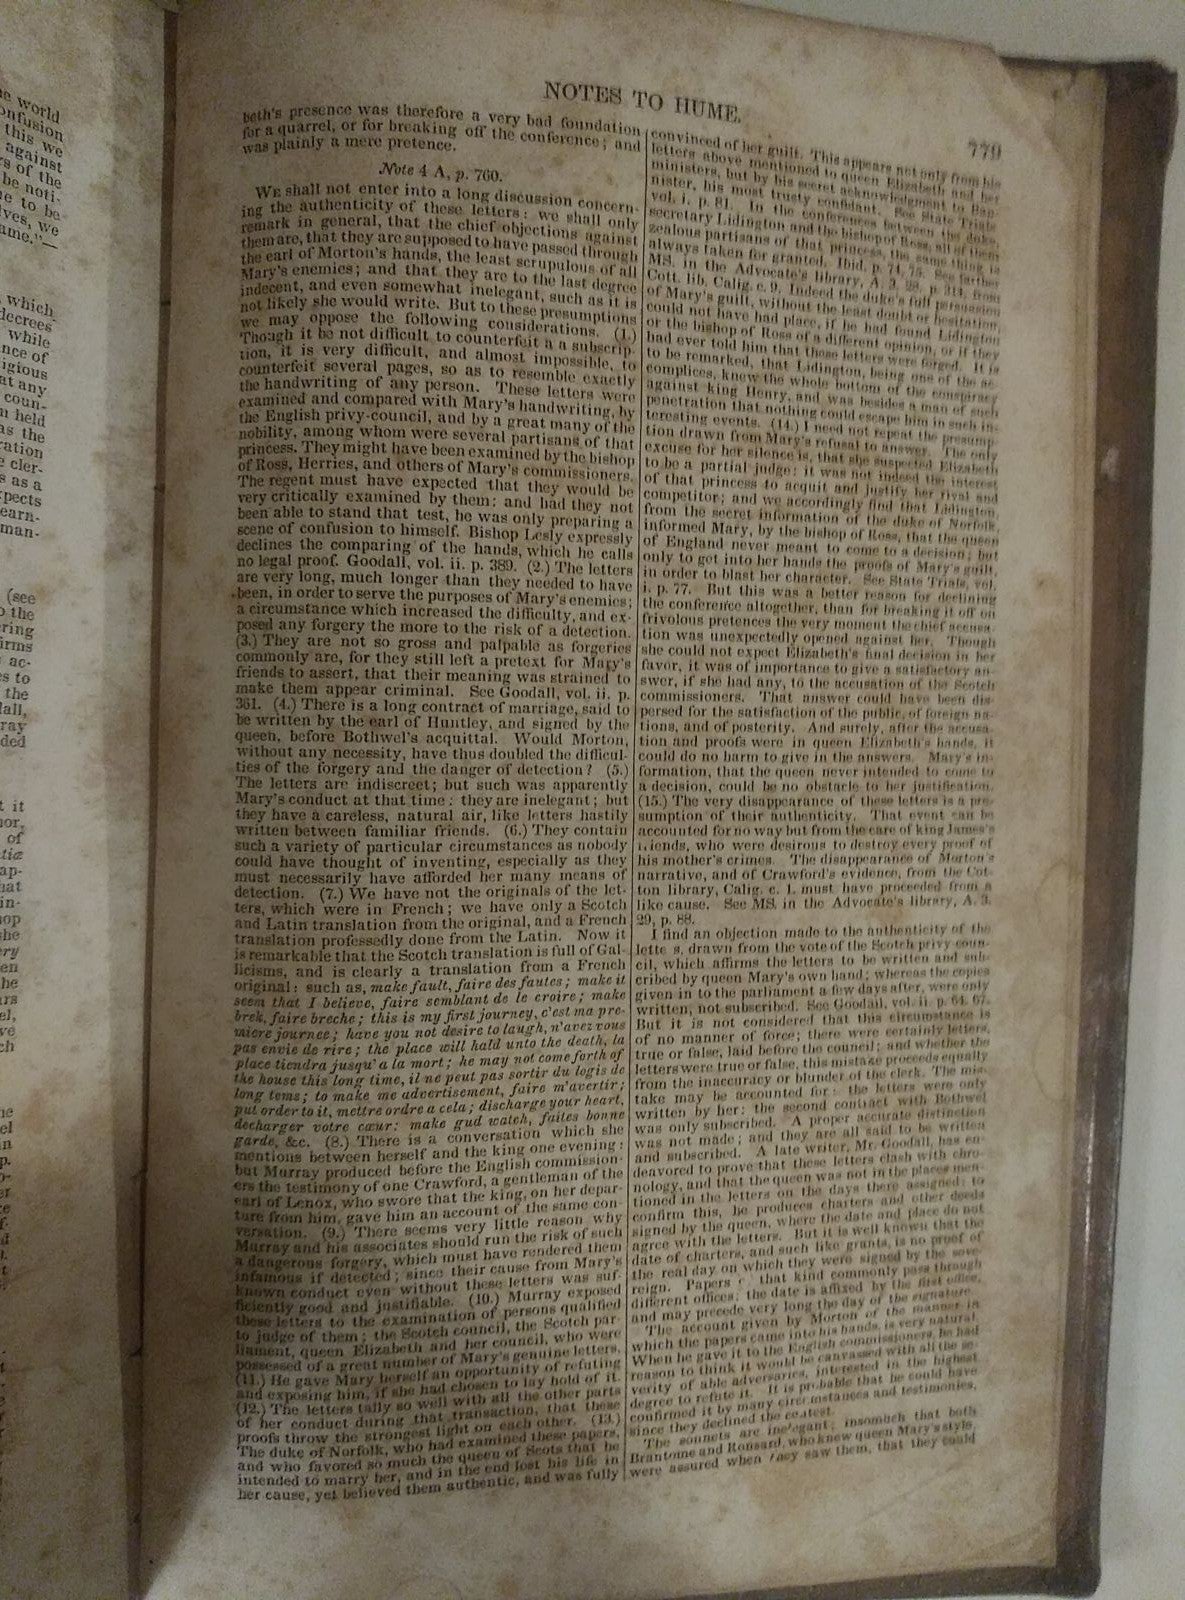 e world
onfusion
this we
against
rs of the
be noti-
e to be
lves, we
ame."—
which
decrees
while
nce of
igious
at any
coun-
n held
as the
ration
cler-
s as a
pects
earn-
man-
(see
o the
ring
irms
ac-
es to
the
dall,
ray
ded
t it
nor,
of
tiæ
ap-
hat
in-
hop
she
ery
en
he
ars
el,
ve
ch
NOTES TO HUME.
779
beth's presence was therefore a very bad foundation
for a quarrel, or for breaking off the conference; and
was plainly a mere pretence.
Note 4 A, p. 760.
WE shall not enter into a long discussion concern-
ing the authenticity of these letters: we shall only
remark in general, that the chief objections against
them are, that they are supposed to have passed through
the earl of Morton's hands, the least scrupulous of all
Mary's enemies; and that they are to the last degree
indecent, and even somewhat inelegant, such as it is
not likely she would write. But to these presumptions
we may oppose the following considerations. (1.)
Though it be not difficult to counterfeit a a subscrip-
tion, it is very difficult, and almost impossible, to
counterfeit several pages, so as to resemble exactly
the handwriting of any person. These letters were
examined and compared with Mary's handwriting, by
the English privy-council, and by a great many of the
nobility, among whom were several partisans of that
princess. They might have been examined by the bishop
of Ross, Herries, and others of Mary's commissioners.
The regent must have expected that they would be
very critically examined by them: and had they not
been able to stand that test, he was only preparing a
scene of confusion to himself. Bishop Lesly expressly
declines the comparing of the hands, which he calls
no legal proof. Goodall, vol. ii. p. 389. (2.) The letters
are very long, much longer than they needed to have
been, in order to serve the purposes of Mary's enemies;
a circumstance which increased the difficulty, and ex-
posed any forgery the more to the risk of a detection.
(3.) They are not so gross and palpable as forgeries
commonly are, for they still left a pretext for Mary's
friends to assert, that their meaning was strained to
make them appear criminal. See Goodall, vol. ii. p.
361. (4.) There is a long contract of marriage, said to
be written by the earl of Huntley, and signed by the
queen, before Bothwel's acquittal. Would Morton,
without any necessity, have thus doubled the difficul-
ties of the forgery and the danger of detection? (5.)
The letters are indiscreet; but such was apparently
Mary's conduct at that time: they are inelegant; but
they have a careless, natural air, like letters hastily
written between familiar friends. (6.) They contain
such a variety of particular circumstances as nobody
could have thought of inventing, especially as they
must necessarily have afforded her many means of
detection. (7.) We have not the originals of the let-
ters, which were in French; we have only a Scotch
and Latin translation from the original, and a French
translation professedly done from the Latin. Now it
is remarkable that the Scotch translation is full of Gal-
licisms, and is clearly a translation from a French
original: such as, make fault, faire des fautes; make it
seem that I believe, faire semblant de le croire; make
brek, faire breche; this is my first journey, c'est ma pre-
miere journée; have you not desire to laugh, n'avez vous
pas envie de rire; the place will hald unto the death, la
place tiendra jusqu' a la mort; he may not come forth of
the house this long time, il ne peut pas sortir du logis de
long tems; to make me advertisement, faire m'avertir;
put order to it, mettre ordre a cela; discharge your heart,
decharger votre cœur: make gud watch, faites bonne
garde, &c. (8.) There is a conversation which she
mentions between herself and the king one evening:
but Murray produced before the English commission-
ers the testimony of one Crawford, a gentleman of the
earl of Lenox, who swore that the king, on her depar-
ture from him, gave him an account of the same con-
versation. (9.) There seems very little reason why
Murray and his associates should run the risk of such
a dangerous forgery, which must have rendered them
infamous if detected; since their cause from Mary's
known conduct even without these letters was suf-
ficiently good and justifiable. (10.) Murray exposed
these letters to the examination of persons qualified
to judge of them; the Scotch council, the Scotch par-
liament, queen Elizabeth and her council, who were
possessed of a great number of Mary's genuine letters.
(11.) He gave Mary herself an opportunity of refuting
and exposing him, if she had chosen to lay hold of it.
(12.) The letters tally so well with all the other parts
of her conduct during that transaction, that these
proofs throw the strongest light on each other. (13.)
The duke of Norfolk, who had examined these papers,
and who favored so much the queen of Scots that he
intended to marry her, and in the end lost his life in
her cause, yet believed them authentic, and was fully
convinced of her guilt. This appears not only from his
letters above mentioned to queen Elizabeth and her
ministers, but by his secret acknowledgment to Ban-
nister, his most trusty confidant. See State Trials
vol. i. p. 81. In the conferences between the duke,
secretary Lidington and the bishop of Ross, all of them
zealous partisans of that princess, the same thing is
always taken for granted. Ibid. p. 74, 75. See farther
MS. in the Advocate's library, A. 3. 28. p. 314, from
Cott. lib. Calig. c. 9. Indeed the duke's full persuasion
of Mary's guilt, without the least doubt or hesitation,
could not have had place, if he had found Lidington
or the bishop of Ross of a different opinion, or if they
had ever told him that these letters were forged. It is
to be remarked, that Lidington, being one of the ac-
complices, knew the whole bottom of the conspiracy
against king Henry, and was besides a man of such
penetration that nothing could escape him in such in-
teresting events. (14.) I need not repeat the presump-
tion drawn from Mary's refusal to answer. The only
excuse for her silence is, that she suspected Elizabeth
to be a partial judge: it was not indeed the interest
of that princess to acquit and justify her rival and
competitor; and we accordingly find that Lidington,
from the secret information of the duke of Norfolk,
informed Mary, by the bishop of Ross, that the queen
of England never meant to come to a decision; but
only to get into her hands the proofs of Mary's guilt,
in order to blast her character. See State Trials, vol.
i. p. 77. But this was a better reason for declining
the conference altogether, than for breaking it off on
frivolous pretences the very moment the chief accusa-
tion was unexpectedly opened against her. Though
she could not expect Elizabeth's final decision in her
favor, it was of importance to give a satisfactory an-
swer, if she had any, to the accusation of the Scotch
commissioners. That answer could have been dis-
persed for the satisfaction of the public, of foreign na-
tions, and of posterity. And surely, after the accusa-
tion and proofs were in queen Elizabeth's hands, it
could do no harm to give in the answers. Mary's in-
formation, that the queen never intended to come to
a decision, could be no obstacle to her justification.
(15.) The very disappearance of these letters is a pre-
sumption of their authenticity. That event can be
accounted for no way but from the care of king James's
friends, who were desirous to destroy every proof of
his mother's crimes. The disappearance of Morton's
narrative, and of Crawford's evidence, from the Cot-
ton library, Calig. c. 1. must have proceeded from a
like cause. See MS. in the Advocate's library, A. 3.
29, p. 88.
I find an objection made to the authenticity of the
letters, drawn from the vote of the Scotch privy coun-
cil, which affirms the letters to be written and sub-
cribed by queen Mary's own hand; whereas the copies
given in to the parliament a few days after, were only
written, not subscribed. See Goodall, vol. ii. p. 64. 67.
But it is not considered that this circumstance is
of no manner of force; there were certainly letters,
true or false, laid before the council; and whether the
letters were true or false, this mistake proceeds equally
from the inaccuracy or blunder of the clerk. The mis-
take may be accounted for: the letters were only
written by her: the second contract with Bothwel
was only subscribed. A proper accurate distinction
was not made; and they are all said to be written
and subscribed. A late writer, Mr. Goodall, has en-
deavored to prove that these letters clash with chro-
nology, and that the queen was not in the places men-
tioned in the letters on the days there assigned: to
confirm this, he produces charters and other deeds
signed by the queen, where the date and place do not
agree with the letters. But it is well known that the
date of charters, and such like grants, is no proof of
the real day on which they were signed by the sove-
reign. Papers that kind commonly pass through
different offices: the date is affixed by the first office,
and may precede very long the day of the signature.
The account given by Morton of the manner in
which the papers came into his hands, is very natural.
When he gave it to the English commissioners, he had
reason to think it would be canvassed with all the se-
verity of able adversaries, interested in the highest
degree to refute it. It is probable that he could have
confirmed it by many circumstances and testimonies,
since they declined the contest.
The sonnets are inelegant; insomuch that both
Brantome and Ronsard, who knew queen Mary's style,
were assured when they saw them, that they could